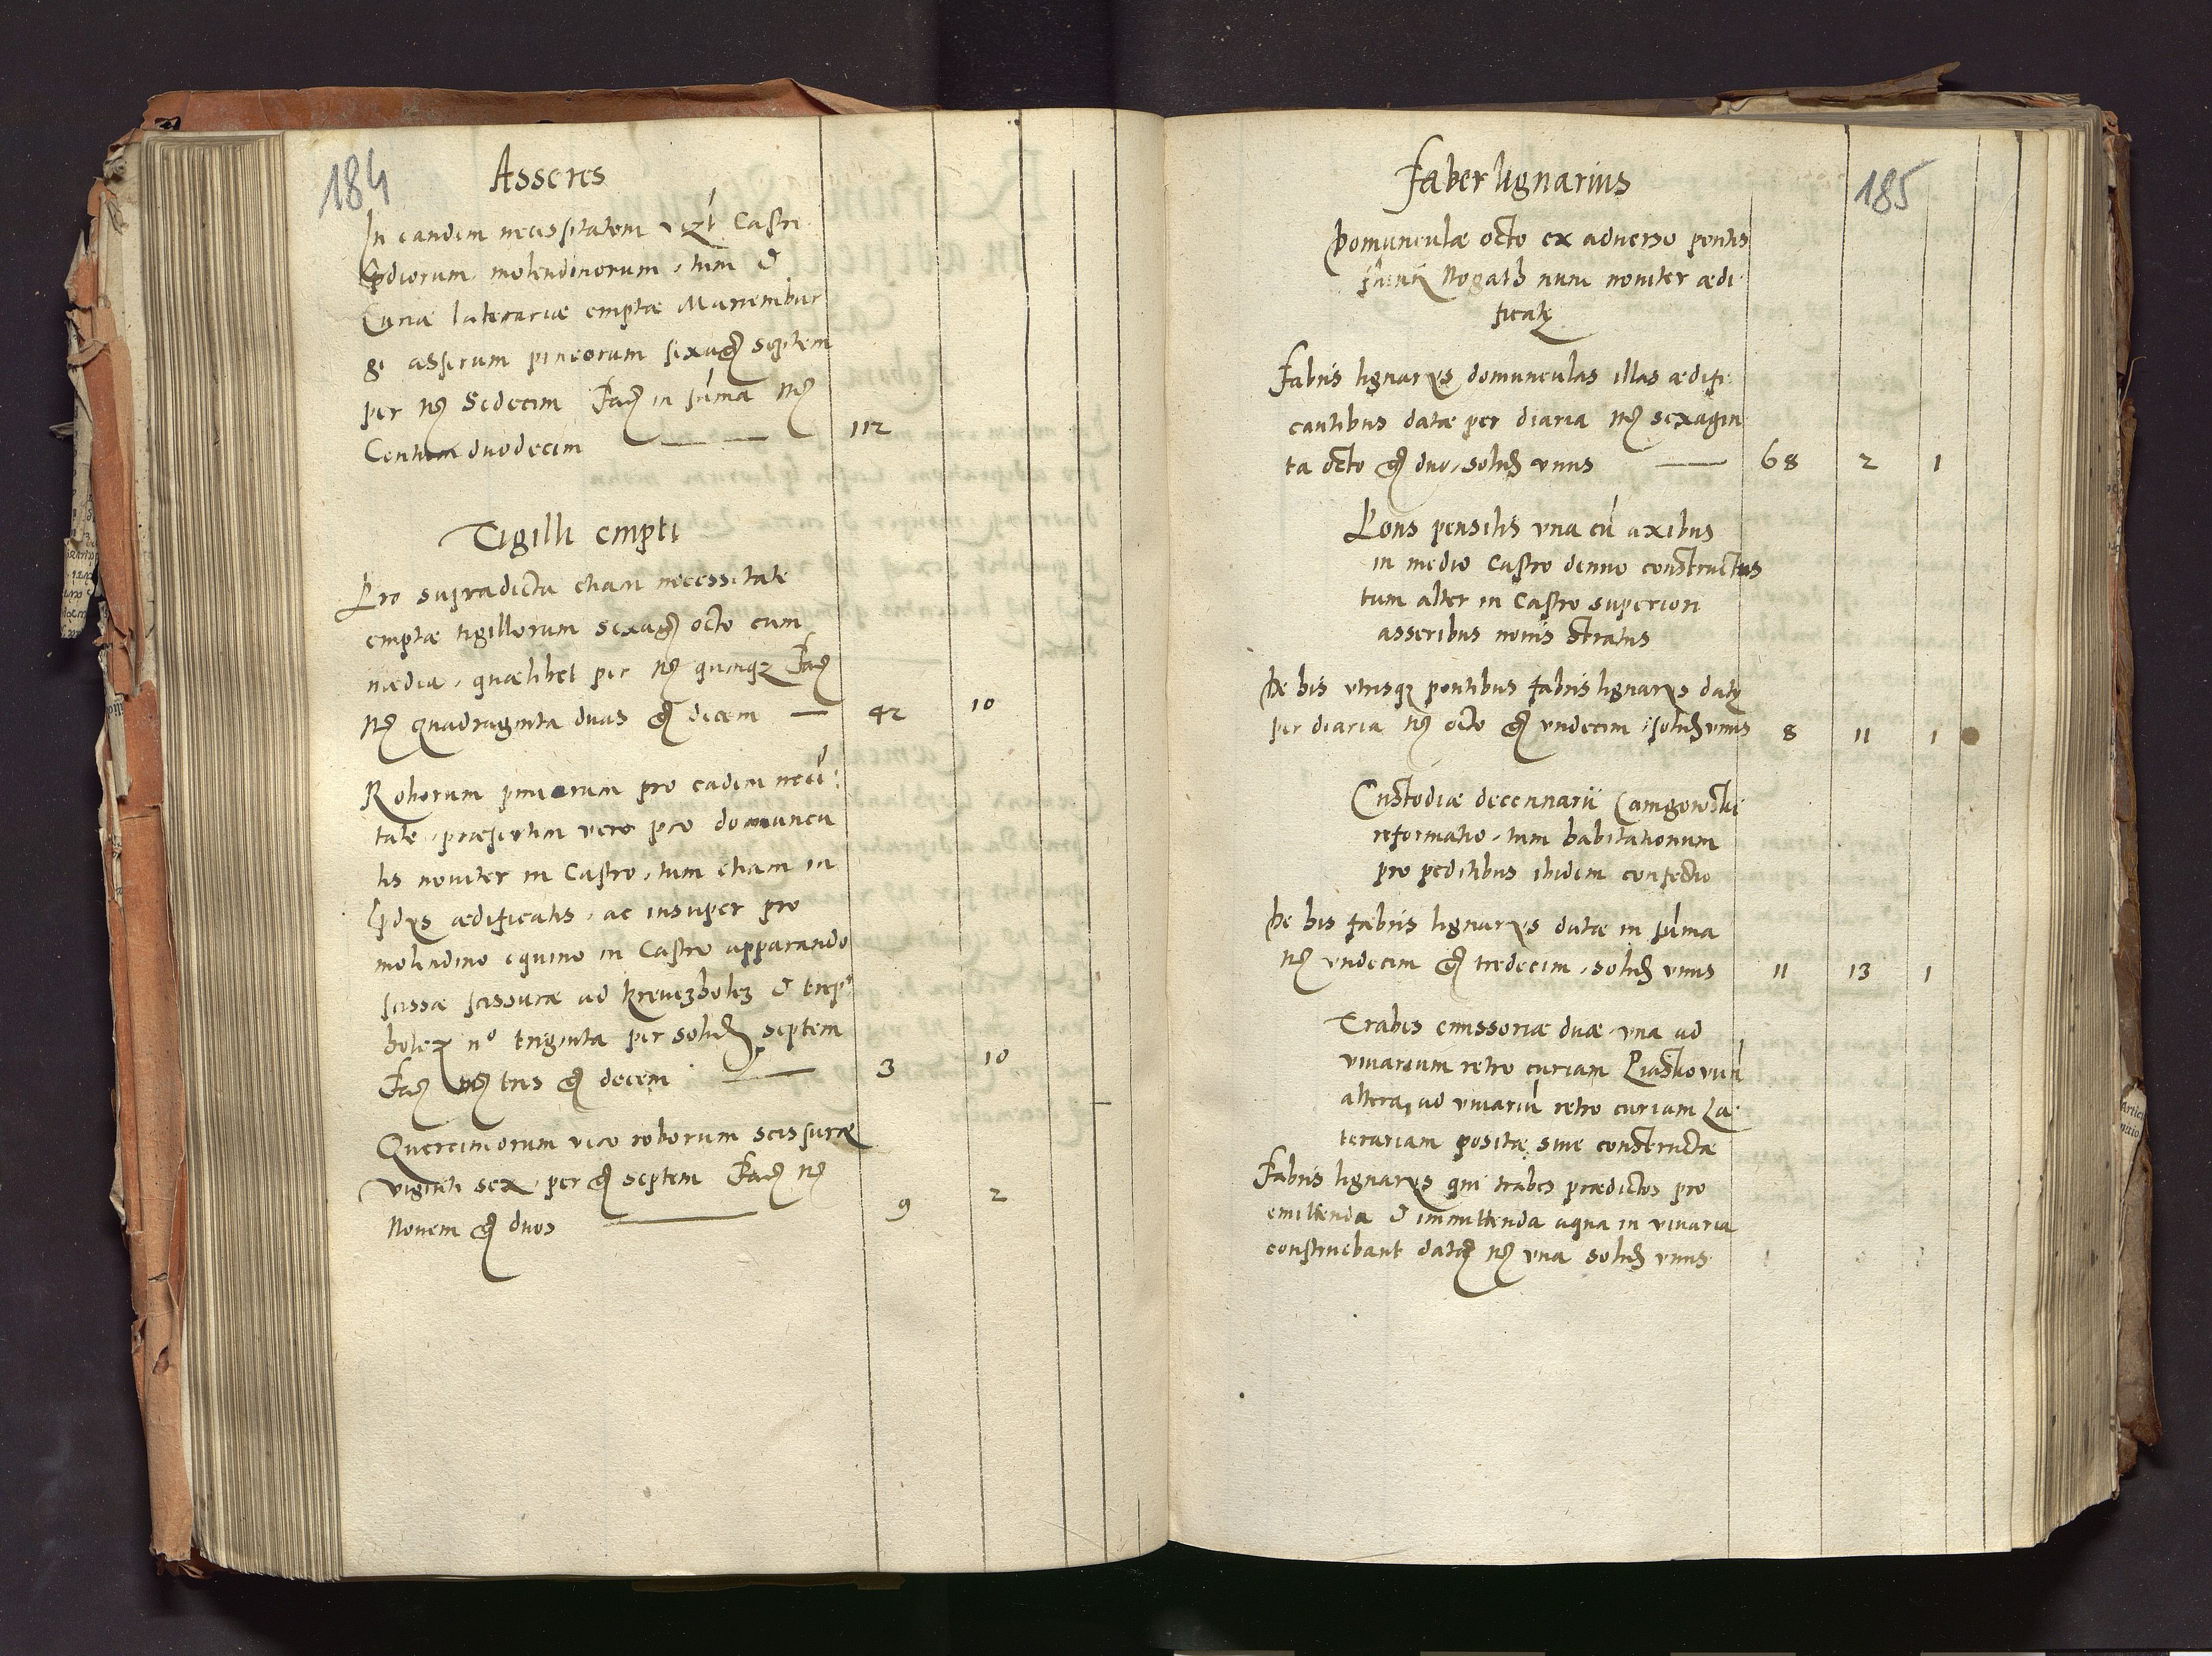 184
Asseres
In eandem necessitatem vizt Castri
p̃diorum, molendinorum, tum &
Curiæ laterariæ emptæ Mariembur
gi asserum pineorum sexag septem
per mr̃ Sedecim Fac̃ in sum̃a mr̃
Centum duodecim — 112
Tigilli empti
Pro supradicta etiam necessitate
emptæ tigillorum sexag octo cum
media, quælibet per mr̃ quinq3 Fac̃
mr̃ Quadraginta duas gr̃ dicem — 42 10
Roborum pinearum pro eadem necĩ:
tate, præsertim vero pro domuncu
lis noviter in Castro, tum etiam in
p̃dijs ædificatis, ac insuper pro
molendino equino in Castro apparando
scissæ scissuræ ad kreuezholcz & trep
holcz nº triginta per solid septem
Fac̃ mr̃ tres gr̃ decem — 3 10
Quercinorum vico roborum scissuræ
viginti sex, per gr̃ septem Fac̃ mr̃
Novem gr̃ duos — 9 2
185
Faber lignarius
Domunculæ octo ex adverso pontis
fluvij Nogath nunc noviter ædi
ficatę
Fabris lignarijs domunculas illas ædifi
cantibus datæ per diaria mr̃ sexagin
ta octo gr̃ duo, solid unus — 68 2 1
Pons pensilis una cũ axibus
in medio Castro denuo constructus
tum alter in Castro superiori
asseribus novis stratus
De his utrisq3 pontibus fabris lignarijs datę
per diaria mr̃ octo gr̃ undecim, solid unus 8 11 1
Custodiæ decennarii
reformatio, tum habitationum
pro peditibus ibidem confectio
De his fabris lignarijs datæ in sum̃a
mr̃ undecim gr̃ tredecim, solid unus 11 13 1
Trabes emissoriæ duæ, una ad
vivarium retro curiam
altera, ad vivariũ retro curiam La
terariam positæ sive constructæ
Fabris lignarijs qui trabes prædictos pro
emittenda & immittenda aqua in vivaria
construebant datæ mr̃ una solid unus 1 0 1